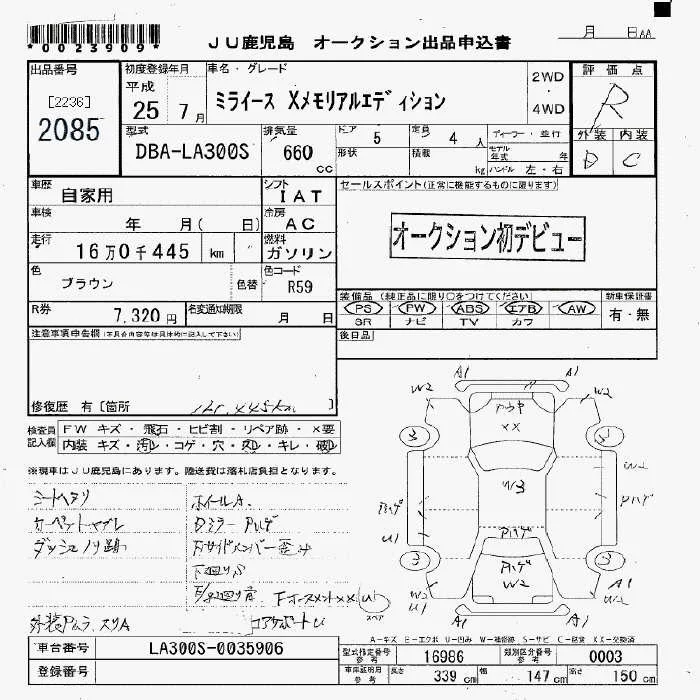 *0023909*
JU鹿児島 オークション出品申込書
月 日AA
出品番号
[2236]
2085
初度登録年月
平成
25 7月
車名・グレード
ミライース Xメモリアルエディション
2WD
・
4WD
評価点
R
外装 内装
D C
型式
DBA-LA300S
排気量
660
cc
ドア 5
定員 4 人
形状
積載 kg
ディーラー・並行
モデル年式 年
ハンドル 左・右
車歴
自家用
シフト
IAT
セールスポイント(正常に機能するものに限ります)
オークション初デビュー
車検
年 月( 日)
冷房
AC
走行
16万0千445 km
燃料
ガソリン
色
ブラウン
色替
色コード
R59
装備品 (純正品に限り○をつけてください)
PS PW ABS エアB AW
SR ナビ TV カワ
新車保証書
有・無
R券
7,320円
名変通知期限
月 日
後日品
注意事項申告欄
修復歴 有〔箇所 〕
160.445km
検査員
記入欄
FW キズ・飛石・ヒビ割・リペア跡・×要
内装 キズ・汚レ・コゲ・穴・スレ・キレ・破レ
※現車はJU鹿児島にあります。陸送費は落札店負担となります。
シートヘタリ
カーペットヤブレ
ダッシュノリ跡
ホイールA
Dミラー Pハゲ
下廻りS
コアサポートU
A1 A1
W2 W2
3 3
××
W3
W2
Pハゲ
Pハゲ
U1
Pハゲ
Pハゲ
W2
3 3
W2
U1
A1
W2
A1 A1
スペア
A-キズ E-エクボ U-凹み W-補修跡 S-サビ C-腐食 XX-交換済
車台番号
LA300S-0035906
登録番号
型式指定番号
参考
16986
類別区分番号
参考
0003
車庫証明用
参考
長さ 339 cm
幅 147 cm
高さ 150 cm